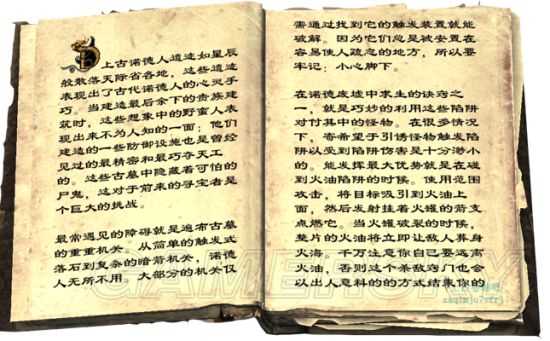 上古诺德人遗迹如星辰
般散落天际省各地，这些遗迹
表现出了古代诺德人的心灵手
巧。当建造最后余下的贵族建
筑时，这些想象中的野蛮人表
现出来不为人知的一面：他们
建造的一些防御设施也是曾经
见过的最精密和最巧夺天工
的。这些古墓中隐藏着可怕的
尸鬼，这对于前来的寻宝者是
个巨大的挑战。
最常遇见的障碍就是遍布古墓
的重重机关。从简单的触发式
落石到复杂的暗箭机关，诺德
人无所不用。大部分的机关仅
需通过找到它的触发装置就能
破解。因为它们总是被安置在
容易使人疏忽的地方，所以要
牢记：小心脚下。
在诺德废墟中求生的诀窍之
一，就是巧妙的利用这些陷阱
对付其中的怪物。在很多情况
下，寄希望于引诱怪物触发陷
阱以受到陷阱伤害是十分渺小
的。能发挥最大优势就是在碰
到火油陷阱的时候。使用范围
攻击，将目标吸引到火油上
面，然后发射挂着火罐的箭支
点燃它。当火罐破裂的时候，
整片的火油将立即让敌人葬身
火海。千万注意你自己要远离
火油，否则这个杀敌窍门也会
以出人意料的的方式结束你的
GAMERSKY
zaqimju7vfr4